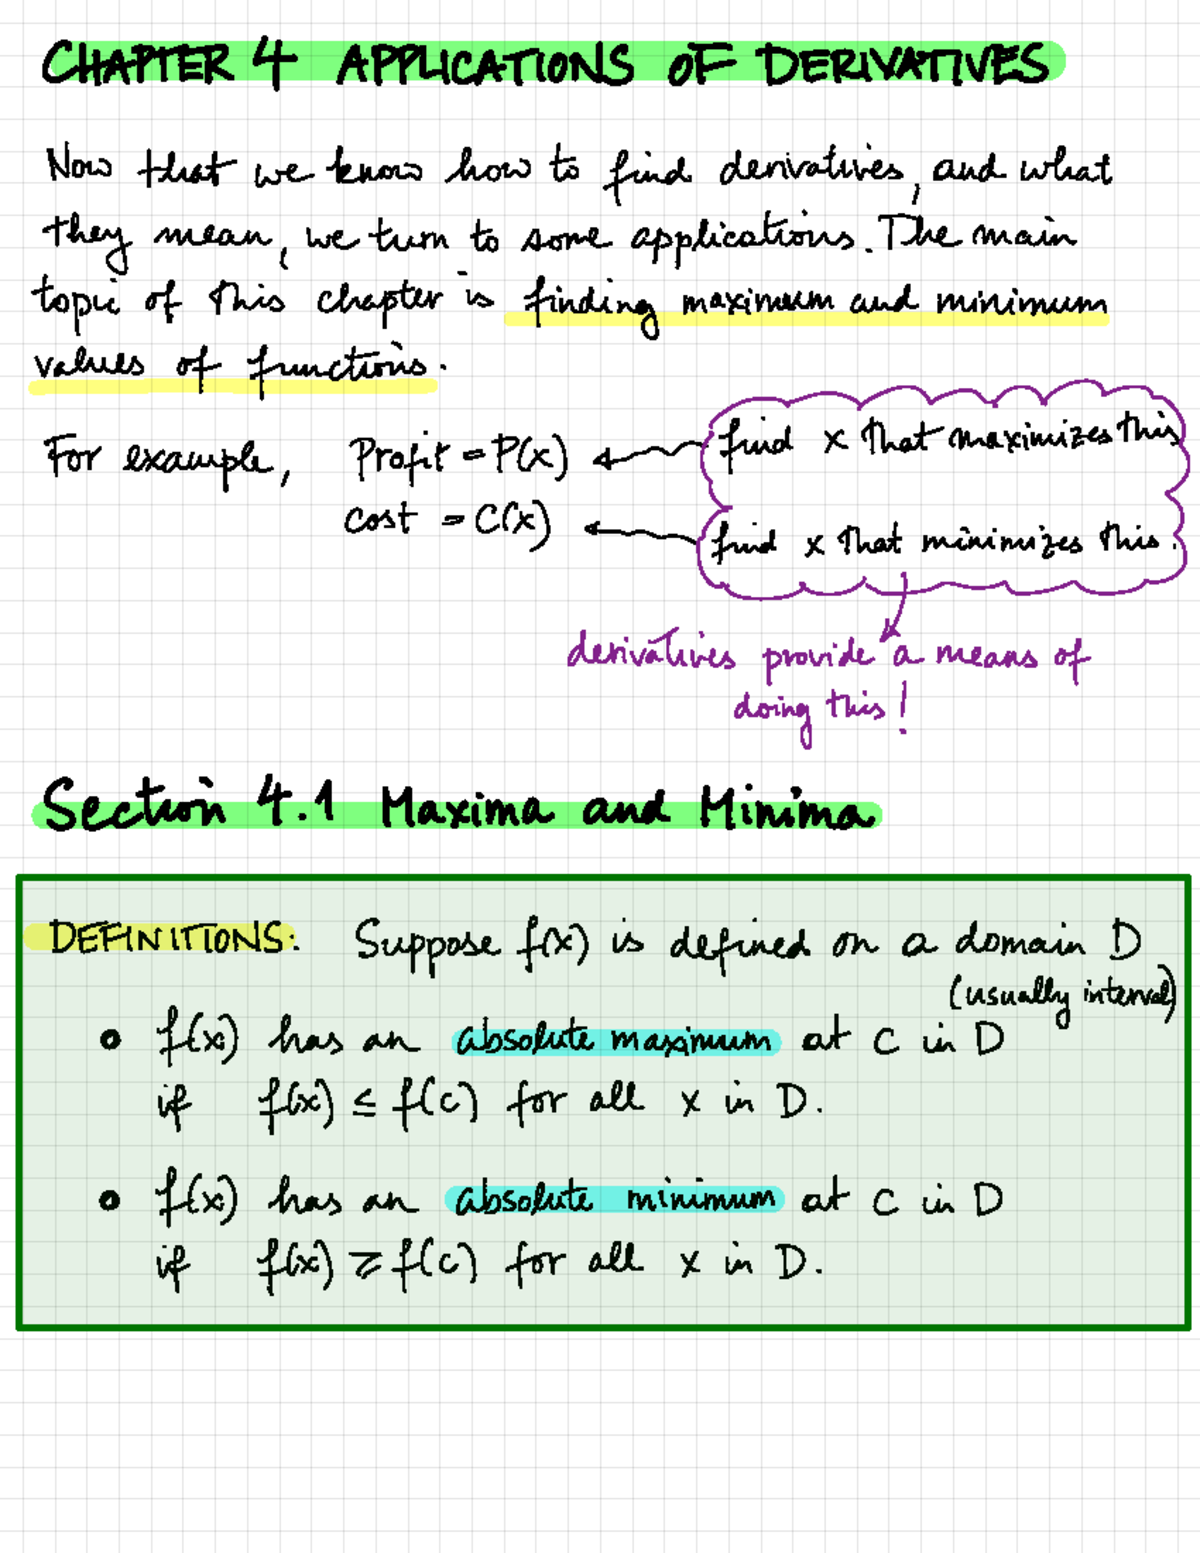 CHAPTER 4 APPLICATIONS OF DERIVATIVES
Now that we know how to find derivatives, and what
they mean, we turn to some applications. The main
topic of this chapter is finding maximum and minimum
values of functions.
For example, Profit = P(x) find x that maximizes this
cost = C(x) find x that minimizes this.
derivatives provide a means of
doing this!
Section 4.1 Maxima and Minima
DEFINITIONS: Suppose f(x) is defined on a domain D
(usually interval)
• f(x) has an absolute maximum at c in D
if f(x) ≤ f(c) for all x in D.
• f(x) has an absolute minimum at c in D
if f(x) ≥ f(c) for all x in D.